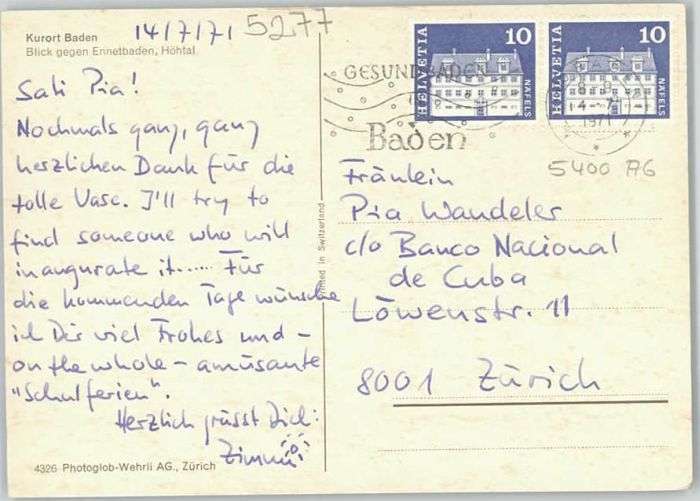 Kurort Baden
Blick gegen Ennetbaden, Höhtal
14/7/71 5277
Sali Pia!
Nochmals ganz, ganz
herzlichen Dank für die
tolle Vase. I'll try to
find someone who will
inaugurate it...... Für
die kommenden Tage wünsche
ich Dir viel Frohes und -
on the whole - amüsante
"Schulferien".
Herzlich grüsst Dich:
4326 Photoglob-Wehrli AG., Zürich
Printed in Switzerland
HELVETIA 10 NÄFELS
HELVETIA 10 NÄFELS
GESUND BADEN
Baden
1971
5400 AG
Fräulein
Pia Wandeler
c/o Banco Nacional
de Cuba
Löwenstr. 11
8001 Zürich